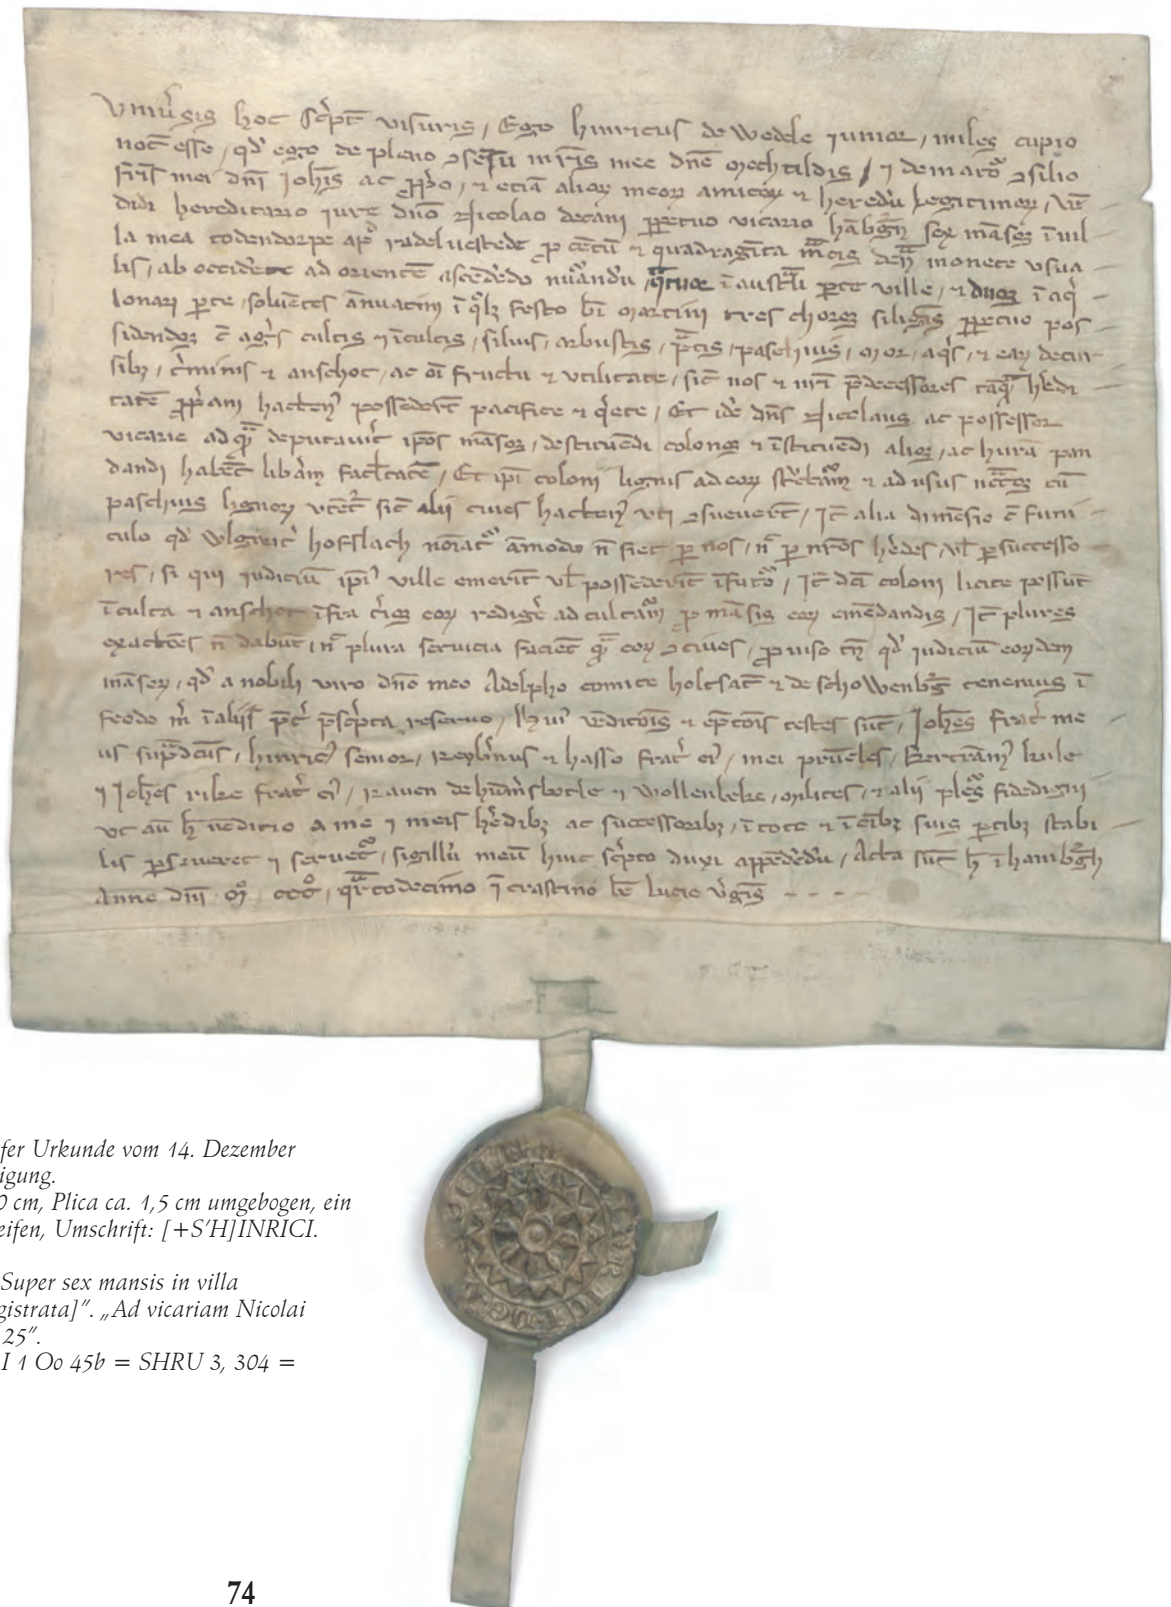 Vniv̄sis hoc sc̄pt visuris / Ego hinricus de Wedele junior / miles cupio
not̄ esse / qđ ego de pleno ↄsēsu mr̄is mee dn̄e Mechtildis / ⁊ de maṫo ↄsilio
fr̄is mei dn̄i Joh̄is ac / ⁊ eciā alioꝝ meoꝝ amicoꝝ ⁊ heredū legitimoꝝ / vē
didi hereditario jure dn̄o Nicolao decani ꝑpetuo vicario hābgn̄ sex māsos ī vil
la mea todendorpe ap̄ radeluestede ꝓ cētū ⁊ quadragīta mr̄cis den̄ monete vsua
lis / ab occidēte ad orientē ascēdēdo / qtuor ī austͣli ꝑte ville / ⁊ duos ī aq̇
lonari ꝑte / soluētes ānuatim ī q̇lꝫ festo bī Martini tres choros siliginis ꝑpetuo pos
sidendos c̄ agr̄s cultis ⁊ ī cultis / siluis / arbustis / pͣtis / pascuis / mor / aq̇s / ⁊ eaꝝ decur
sibꝫ / t̄minis ⁊ anschot / ac oī fructu ⁊ vtilitate / sic̄ nos ⁊ nr̄i p̄decessores tāqͣ h̄edi
tatē ꝓp̄am hacten⁹ possederūt pacifice ⁊ q̇ete / Et idē dn̄s Nicolaus ac possessor
vicarie ad qͣ deputauit ip̄os māsos / destituēdi colonos ⁊ īstituēdi alios / ac huram pan
dandi habēt lib̄am facl̄tatē / Et ip̄i coloni lignis ad eoꝝ ⁊ ad usus cū
pascuis lignoꝝ vtēt̄ sic̄ alii ciues hacten⁹ vti ↄsueuerūt / Jt̄ alia dimēsio c̄ funi
culo qđ hofslach noīat̄ āmodo n̄ fiet ꝑ nos / n̄ ꝑ nr̄os h̄edes / vl̄ ꝑ successo
res / si qui judiciū ip̄i⁹ ville emerīt vl̄ possederīt ī futo / Jt̄ dc̄i coloni licite possūt
ī culta ⁊ anschot īfra t̄mios eoꝝ rediḡe ad cultāͫ ꝓ māsis eoꝝ emēdandis / Jt̄ plures
exactōes n̄ dabūt / n̄ plura seruicia faciēt qͣ eoꝝ ↄciues / ꝓuiso tn̄ qđ judiciū eoꝝdem
māsoꝝ / qđ a nobili viro dn̄o meo Adolpho comite holtsat̄ ⁊ de schowenbḡ tenemus ī
feodo m̄ ī aliis p̄ p̄sc̄pta reseruo / hui⁹ vēdicōis ⁊ ēptōis testes sūt / Joh̄es frat̄ me
us sup̄dc̄us / hinric⁹ senior / Reyb̄nus ⁊ hasso frat̄ ei⁹ / mei pr̄ueles / Bertrām⁹ kule
⁊ Joh̄es rike frat̄ ei⁹ / Rauen de ⁊ Wollenbeke / milites / ⁊ alii pl̄es fidedigni
vt aū h̄ vēditio a me ⁊ meis h̄edibꝫ ac successoribꝫ / ī toto ⁊ ī oībꝫ suis ꝑtibꝫ stabi
lis ꝑseueret ⁊ seruet̄ / sigillū meū huic sc̄pto duxi appēdēdū / Acta sūt h̄ ī hambḡh
Anno dn̄i M̊ ccc̊ / qͣrto decimo ī crastino be Lucie v̄gīs - - - -
fer Urkunde vom 14. Dezember
igung.
0 cm, Plica ca. 1,5 cm umgebogen, ein
eifen, Umschrift: [+S'H]INRICI.
Super sex mansis in villa
gistrata]". „Ad vicariam Nicolai
25".
I 1 Oo 45b = SHRU 3, 304 =
74